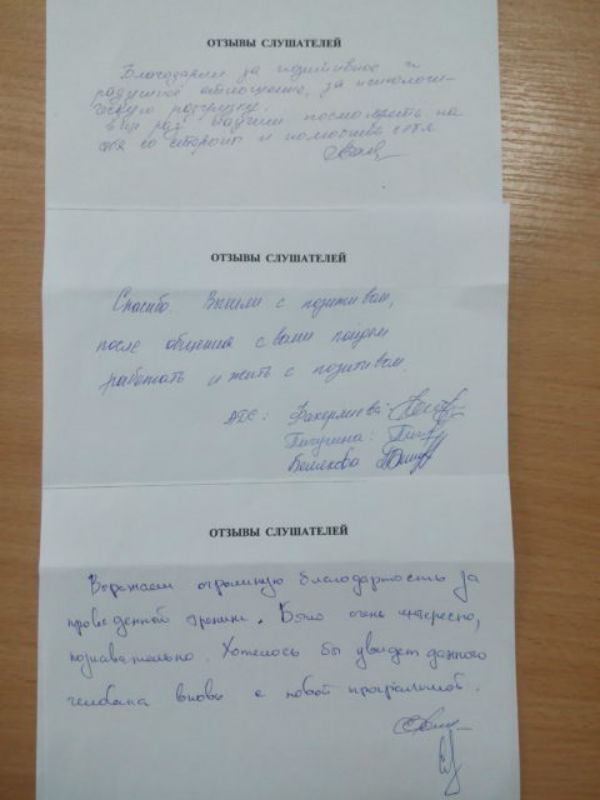 ОТЗЫВЫ СЛУШАТЕЛЕЙ
Благодарим за позитивное и
радушное отношение, за психологи-
ческую разгрузку.
раз посмотреть на
себя со стороны и себя
ОТЗЫВЫ СЛУШАТЕЛЕЙ
Спасибо. Вышли с позитивом,
после общения с вами пойдем
работать и жить с позитивом.
АТС:
Пичугина:
ОТЗЫВЫ СЛУШАТЕЛЕЙ
Выражаем огромную благодарность за
проведенной тренинг. Было очень интересно,
познавательно. Хотелось бы увидет данного
человека вновь с новой программой.